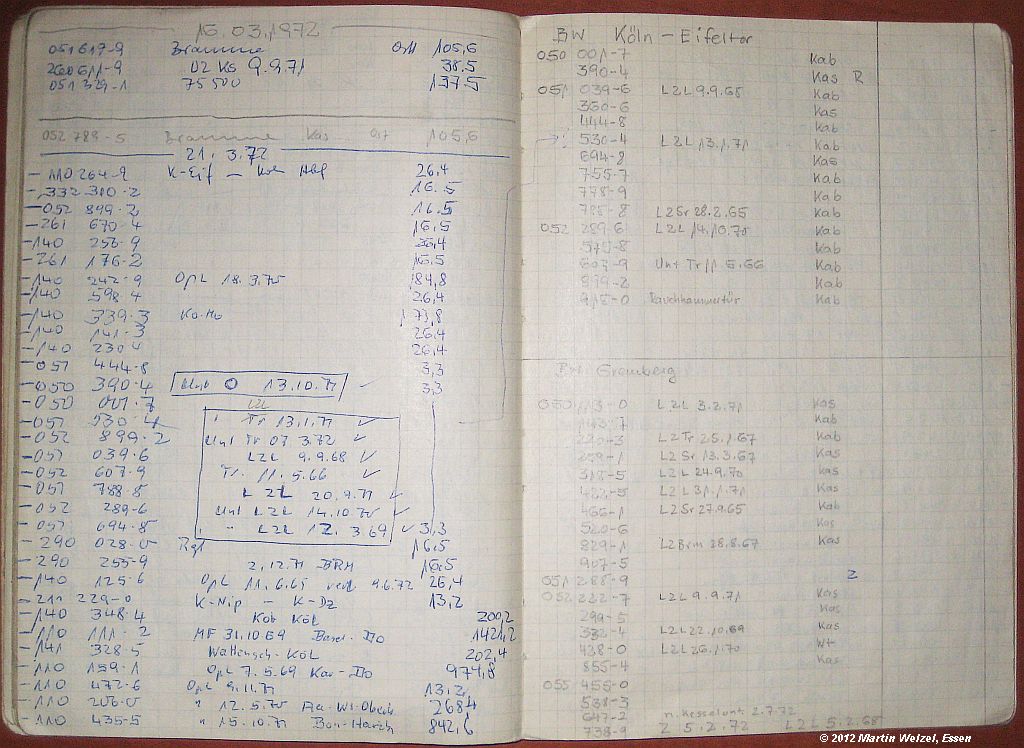 16.03.1972
051 617-9 Bramme 105,6
260 611-9 U2 Ks 9.9.71 38.5
051 329-1 75 500 137.5
052 788-5 Bramme Kas 105,6
21. 3.72
110 264-9 K-Eif 26,4
332 310-2 16.5
052 899-2 16.5
261 670-4 16,5
140 256-9
261 176-2 16.5
140 242-9 Opl 18.3.75 184,8
140 598-4 26,4
140 339-3 Ko-Mo 173,8
140 141-3 26,4
140 230-4 26,4
051 444-8 3,3
050 390-4 Unt O 13.10.71 3,3
050 001-7 L2L
051 530-4 Tr 13.1.71 ✓
052 899-2 Unt Tr 07 3.72 ✓
051 039-6 L2L 9.9.68 ✓
052 607-9 Tr. 11.5.66 ✓
051 788-8 L2L 20.9.71 ✓
052 289-6 Unt L2L 14.10.70 ✓
051 694-8 " L2L 12.3.69 ✓ 3,3
290 028-0 16.5
290 255-9 2.12.71 BRH 16.5
140 125-6 Opl 11.6.65 9.6.72 26,4
211 229-0 K-Nip - K-Dz 13,2
140 348-4 Kob Köl 200,2
110 111-2 MF 31.10.69 Basel-Do 1421,2
141 328-5 Wattensch-Köl 202,4
110 159-1 Opl 7.5.69 Kar-Do 974,8
110 472-6 Opl 9.11.71 13,2
110 206-0 " 12.5.70 Aa-Wt-Oberh 268,4
110 435-5 " 15.10.71 842,6
BW Köln-Eifeltor
050 001-7 Kab
390-4 Kas R
051 039-6 L2L 9.9.68 Kab
360-6 Kas
444-8 Kab
530-4 L2L 13.1.71 Kab
694-8 Kas
755-7 Kab
778-9 Kab
788-8 L2Sr 28.2.65 Kab
052 289-6 L2L 14.10.70 Kab
570-8 Kab
607-9 Unt Tr 11.5.66 Kab
899-2 Kab
915-0 Rauchkammertür Kab
BW. Gremberg
050 113-0 L2L 3.2.71 Kas
143-7 Kab
220-3 L2Tr 25.1.67 Kab
259-1 L2Sr 13.3.67 Kas
318-5 L2L 24.9.70 Kas
432-5 L2L 31.1.71 Kas
466-1 L2Sr 27.9.65 Kab
520-6 Kas
829-1 L2Brm 28.8.67 Kas
907-5
051 288-9 Z
052 222-7 L2L 9.9.71 Kas
299-5 Kas
332-4 L2L 22.10.69 Kas
438-0 L2L 26.1.70 Wt
855-4 Kas
055 455-0
538-3
647-2 n. Kesselunt 2.7.72
738-9 Z 5.2.72 L2L 5.2.68
© 2012 Martin Welzel, Essen